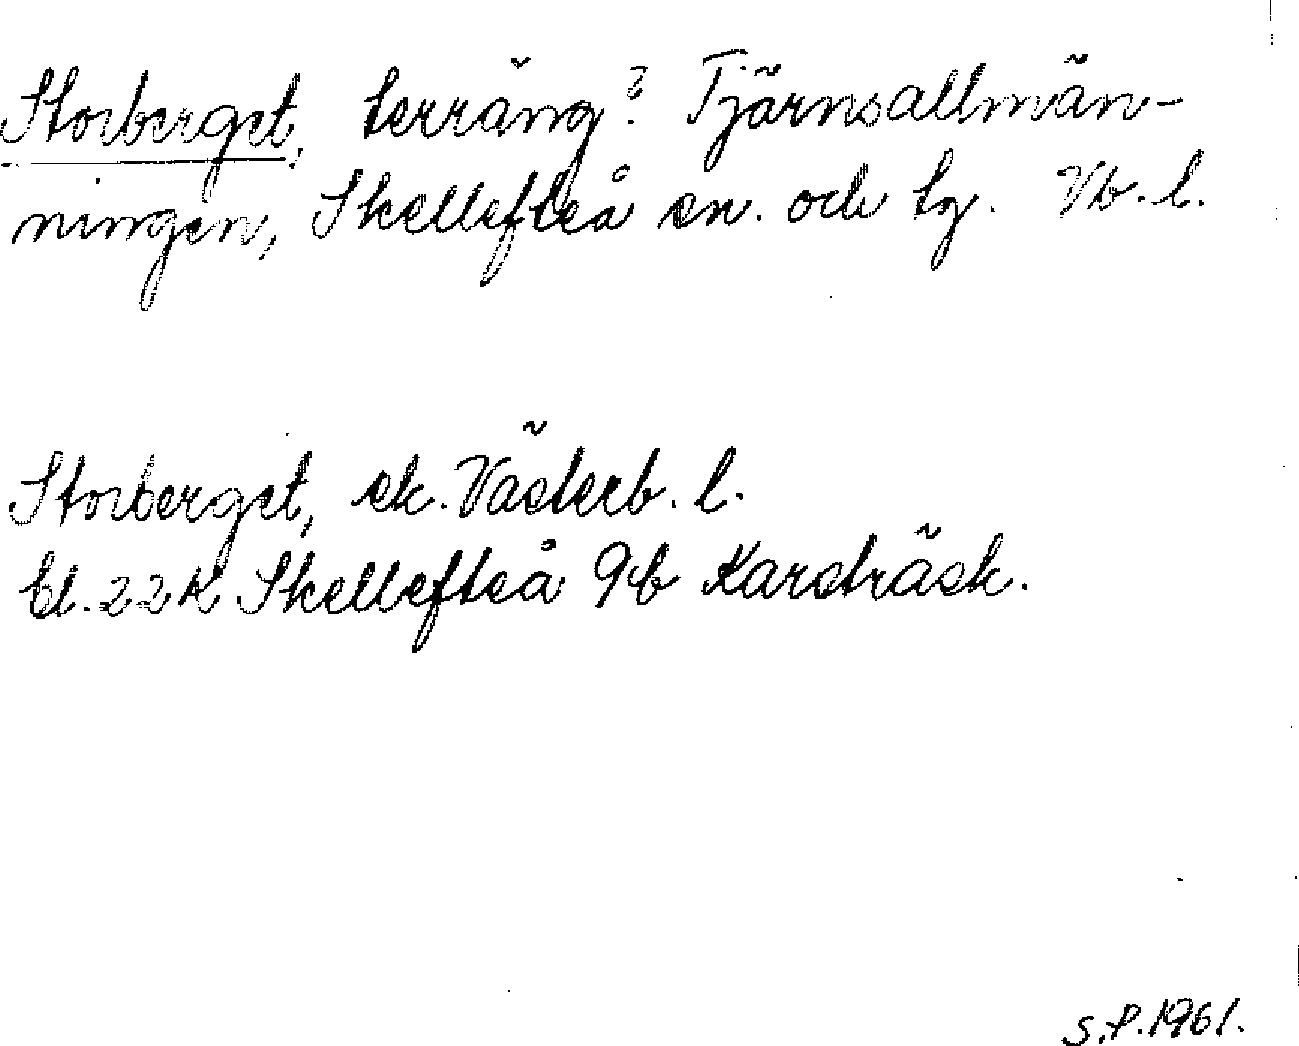 Storberget, terräng? Tjärnsallmän-
ningen, Skellefteå sn. och tg. Vb. l.
Storberget, ek. Västerb. l.
bl. 22K Skellefteå 9b Karsträsk.
S.P. 1961.